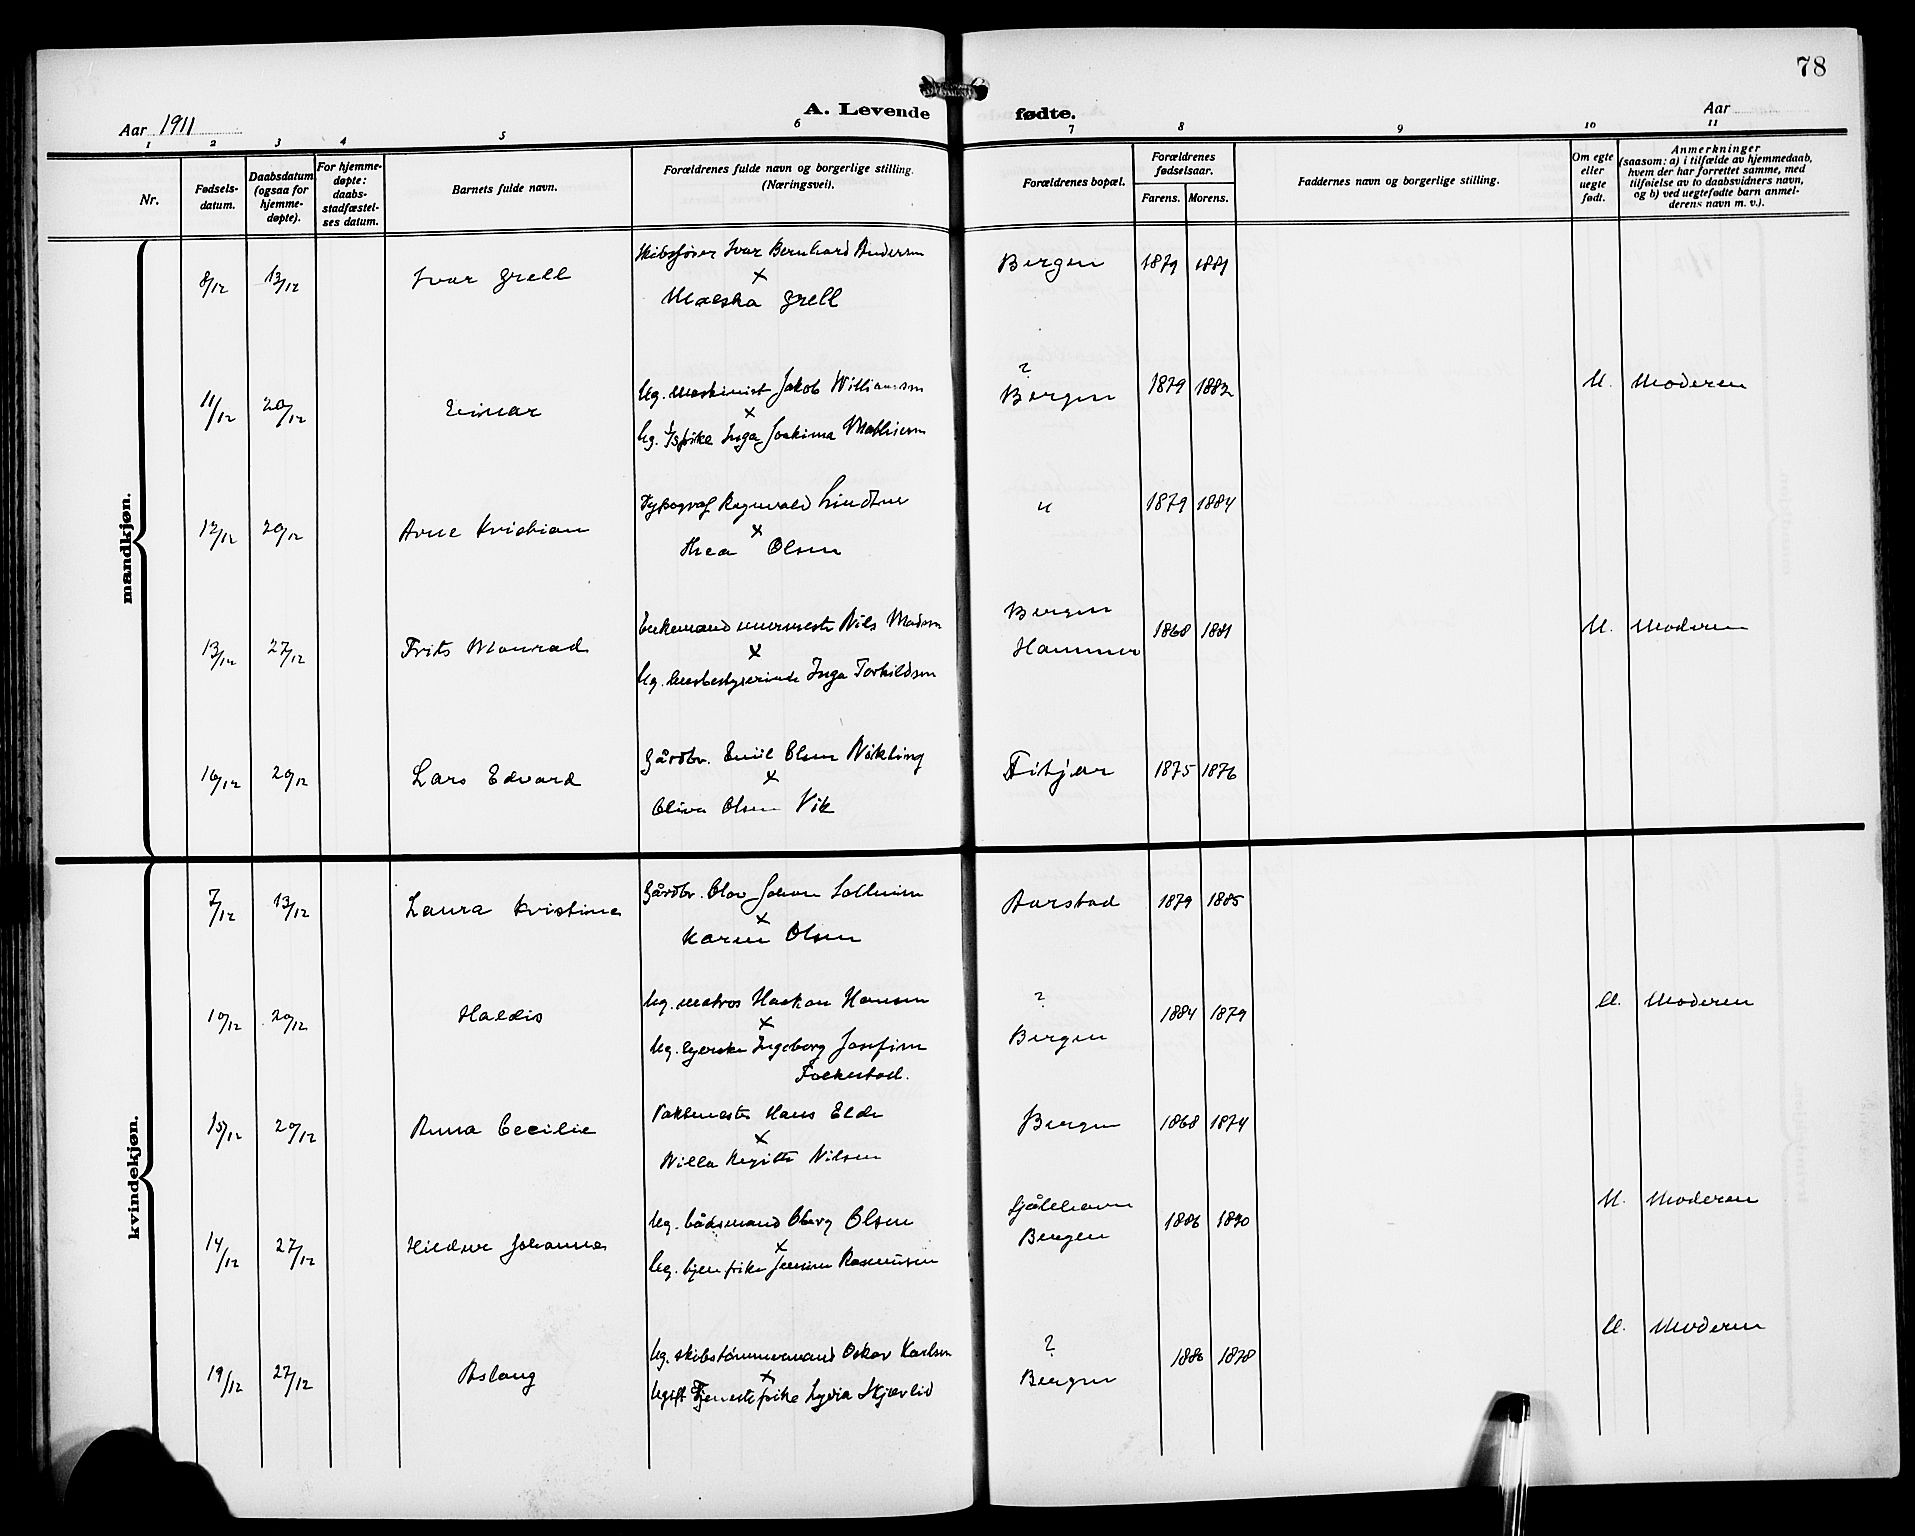 78
A. Levende fødte.
Aar 1911
Aar
1 2 3 4 5 6 7 8 9 10 11
Nr.
Fødsels-
datum.
Daabsdatum
(ogsaa for
hjemme-
døpte).
For hjemme-
døpte:
daabs-
stadfæstel-
ses datum.
Barnets fulde navn.
Forældrenes fulde navn og borgerlige stilling.
(Næringsvei).
Forældrenes bopæl.
Forældrenes
fødselsaar.
Farens. Morens.
Faddernes navn og borgerlige stilling.
Om egte
eller
uegte
født.
Anmerkninger
(saasom: a) i tilfælde av hjemmedaab,
hvem der har forrettet samme, med
tilføielse av to daabsvidners navn,
og b) ved uegtefødte barn anmel-
derens navn m. v.).
mandkjøn.
Skibsfører Ivar Bernhard Andersen
8/12 13/12 Ivar Grell x Bergen 1879 1881
Grell
Ug. maskinist Jakob Williamsen ? 1879 1882 U. Moderen
11/12 20/12 Einar x Bergen
Ug. Inga Joakima Mathiesen
Typograf Ragnvald Lindtner " 1879 1884
12/12 20/12 Arne Kristian x
Thea Olsen
Enkemand murmester Nils Madsen Bergen 1868 1881 U. Moderen
13/12 27/12 Frits Monrad x Hammer
Ug. husbestyrerinde Inga Torkildsen
Gårdbr. Emil Olsen Vikling Fitjar 1875 1876
16/12 20/12 Lars Edvard x
Oliva Olsen Vik
kvindekjøn.
Gårdbr. Olav Johan Solheim Aarstad 1879 1885
7/12 13/12 Laura Kristine x
Karen Olsen
Ug. matros Haakon Hansen ? 1884 1879 U. Moderen
10/12 20/12 Haldis x Bergen
Ug. syerske Ingeborg Josefine
Folkestad.
Pakmester Hans Elde Bergen 1868 1874
15/12 20/12 Anna Cecilie x
Nilsen
Ug. bådsmand Olsen Bergen 1886 1890 U. Moderen
14/12 27/12 Johanne x
Ug. tjen.pike Jensine Rasmussen
Ug. skibstømmermand Oskar Karlsen ? 1886 1878 U. Moderen
19/12 27/12 Aslaug x Bergen
Ugift Tjenestepike Lydia Skjævlid